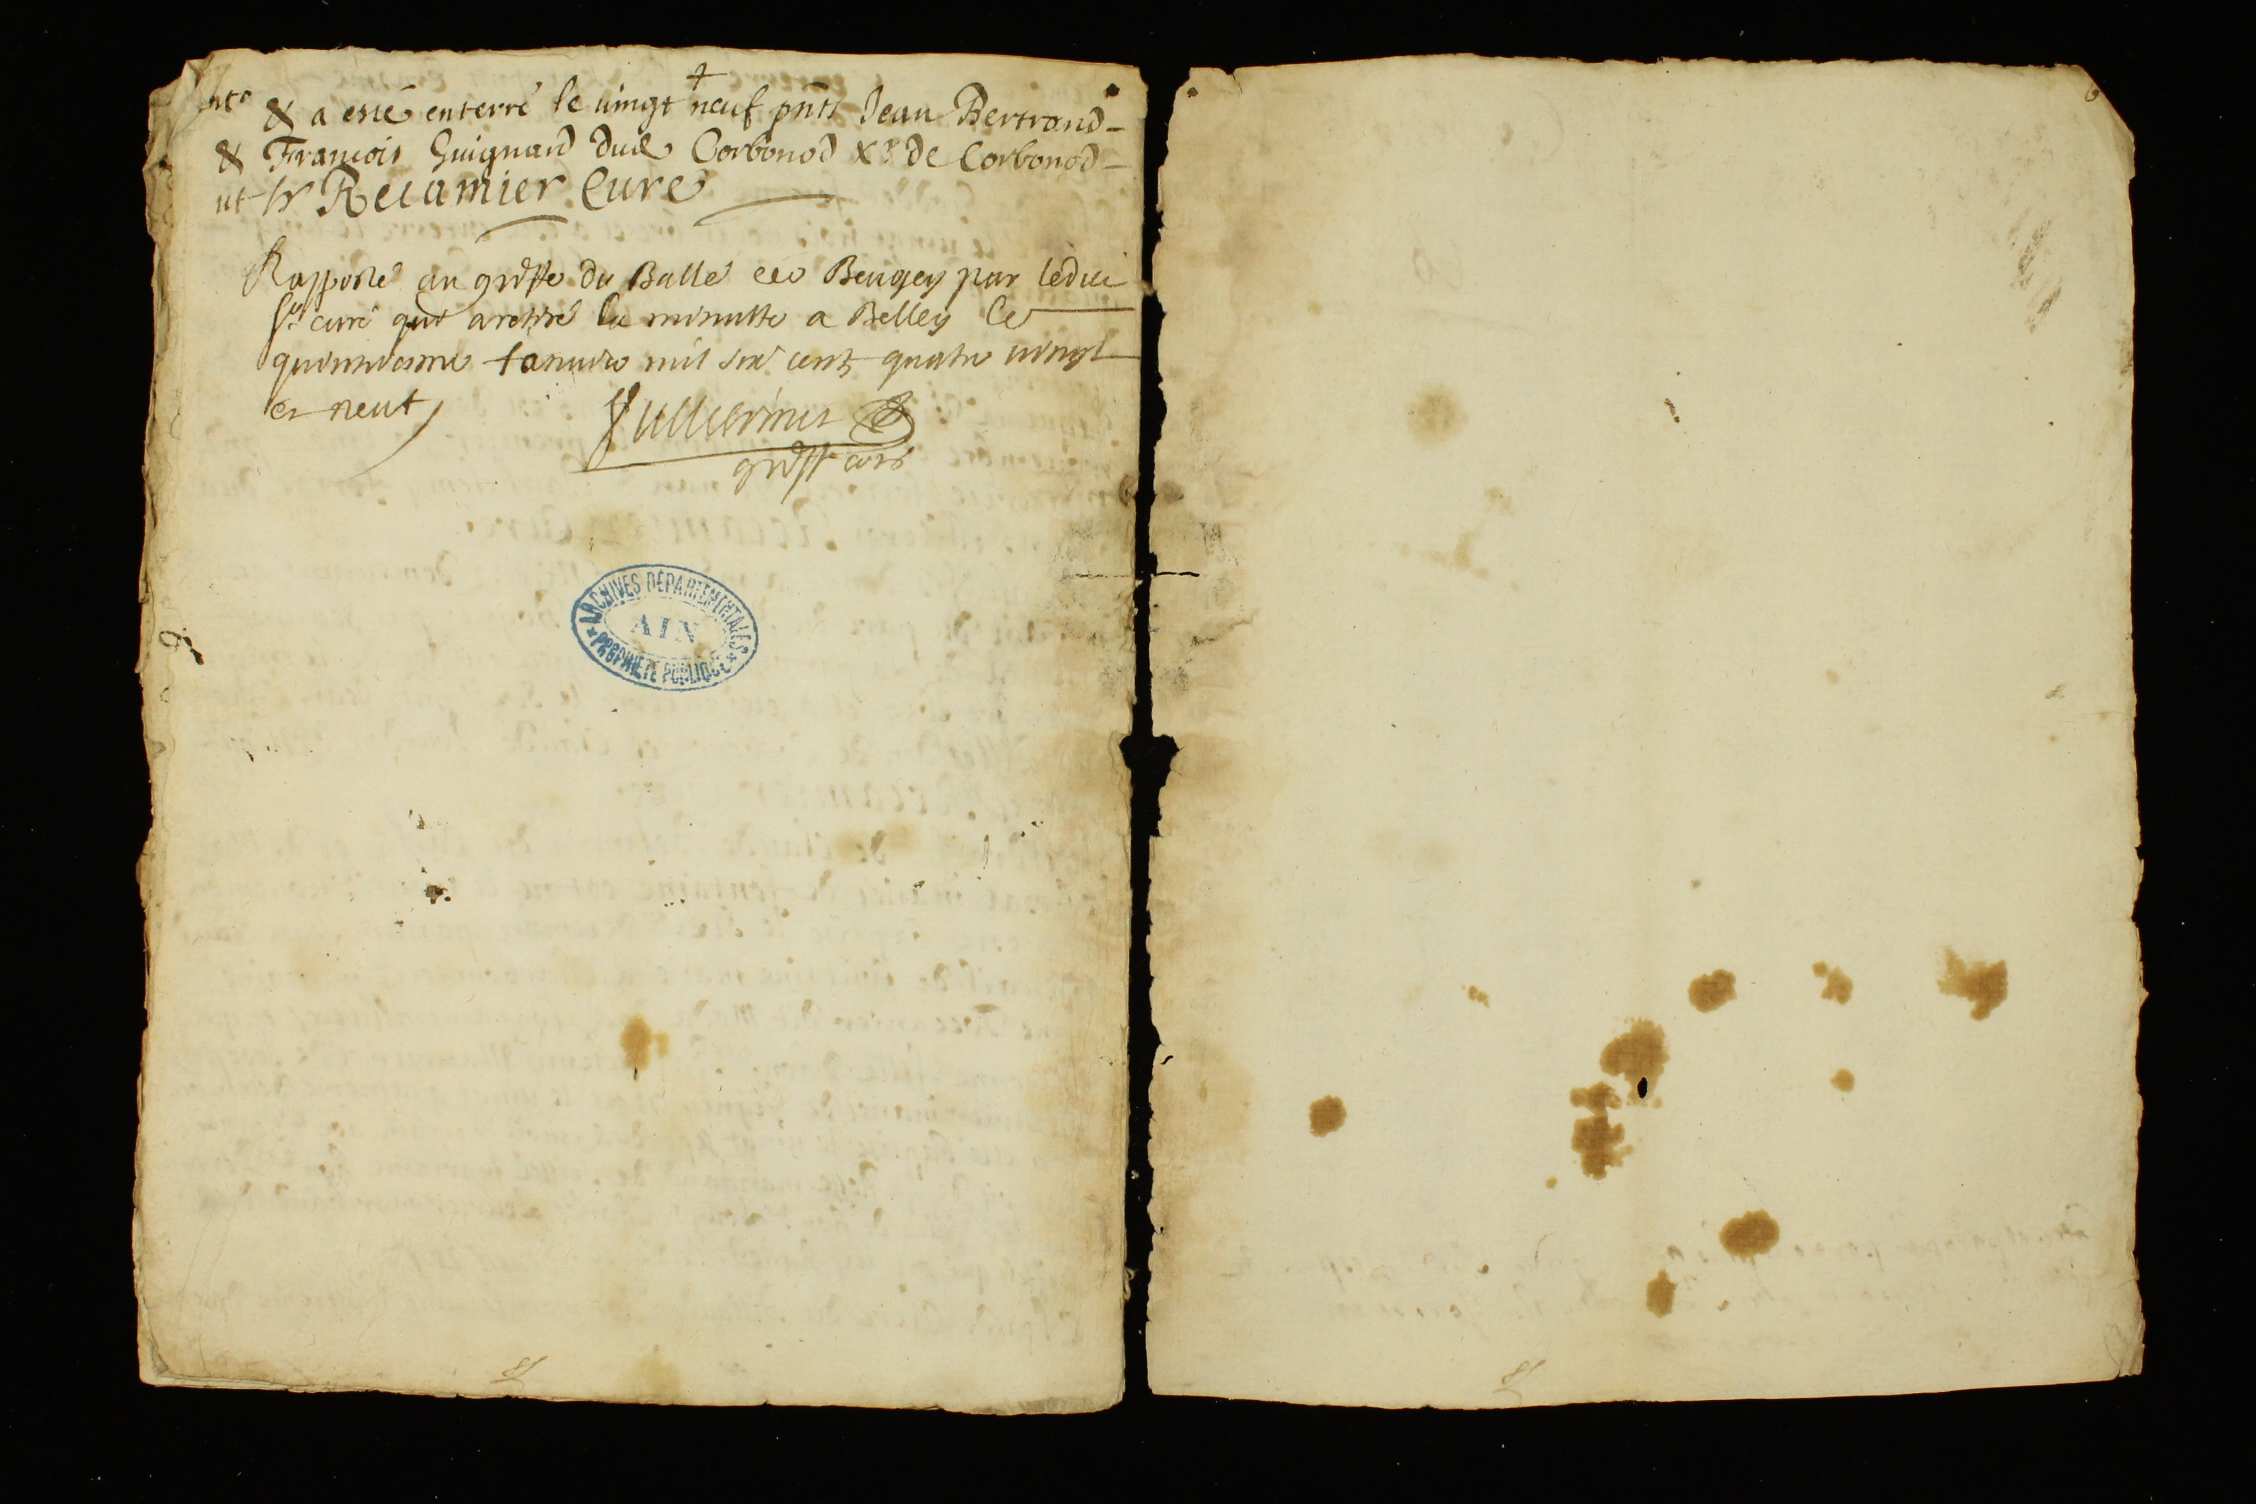 & a esté enterré le vingt neuf pnts Jean Bertrand
& François Guignard dud Corbonod de Corbonod
ut sr Recamier Curé
Rapporté au greffe du Balle Beugey par ledict
sr curé qui a retiré la minutte a Belley le
quinziesme Janvier mil six cent quatre vingt
et neuf
greff
ARCHIVES DÉPARTEMENTALES
AIN
PROPRIÉTÉ PUBLIQUE